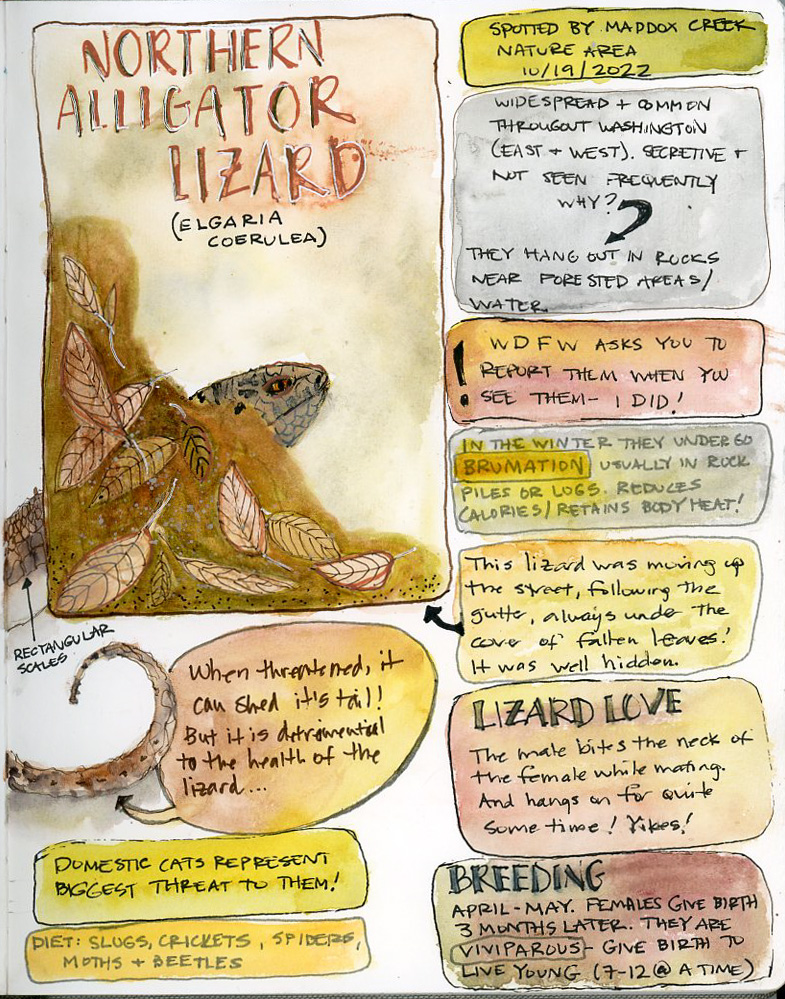 NORTHERN
ALLIGATOR
LIZARD
(ELGARIA
COERULEA)
SPOTTED BY MADDOX CREEK
NATURE AREA
10/19/2022
WIDESPREAD + COMMON
THROUGOUT WASHINGTON
(EAST + WEST). SECRETIVE +
NOT SEEN FREQUENTLY
WHY?
THEY HANG OUT IN ROCKS
NEAR FORESTED AREAS/
WATER
! WDFW ASKS YOU TO
REPORT THEM WHEN YOU
SEE THEM- I DID!
IN THE WINTER THEY UNDERGO
BRUMATION USUALLY IN ROCK
PILES OR LOGS. REDUCES
CALORIES/RETAINS BODY HEAT!
This lizard was moving up
the street, following the
gutter, always under the
cover of fallen leaves!
It was well hidden.
RECTANGULAR
SCALES
When threatened, it
can shed it's tail!
But it is detrimental
to the health of the
lizard...
LIZARD LOVE
The male bites the neck of
the female while mating.
And hangs on for quite
some time! Yikes!
DOMESTIC CATS REPRESENT
BIGGEST THREAT TO THEM!
DIET: SLUGS, CRICKETS, SPIDERS,
MOTHS + BEETLES
BREEDING
APRIL-MAY. FEMALES GIVE BIRTH
3 MONTHS LATER. THEY ARE
VIVIPAROUS- GIVE BIRTH TO
LIVE YOUNG (7-12 @ A TIME)